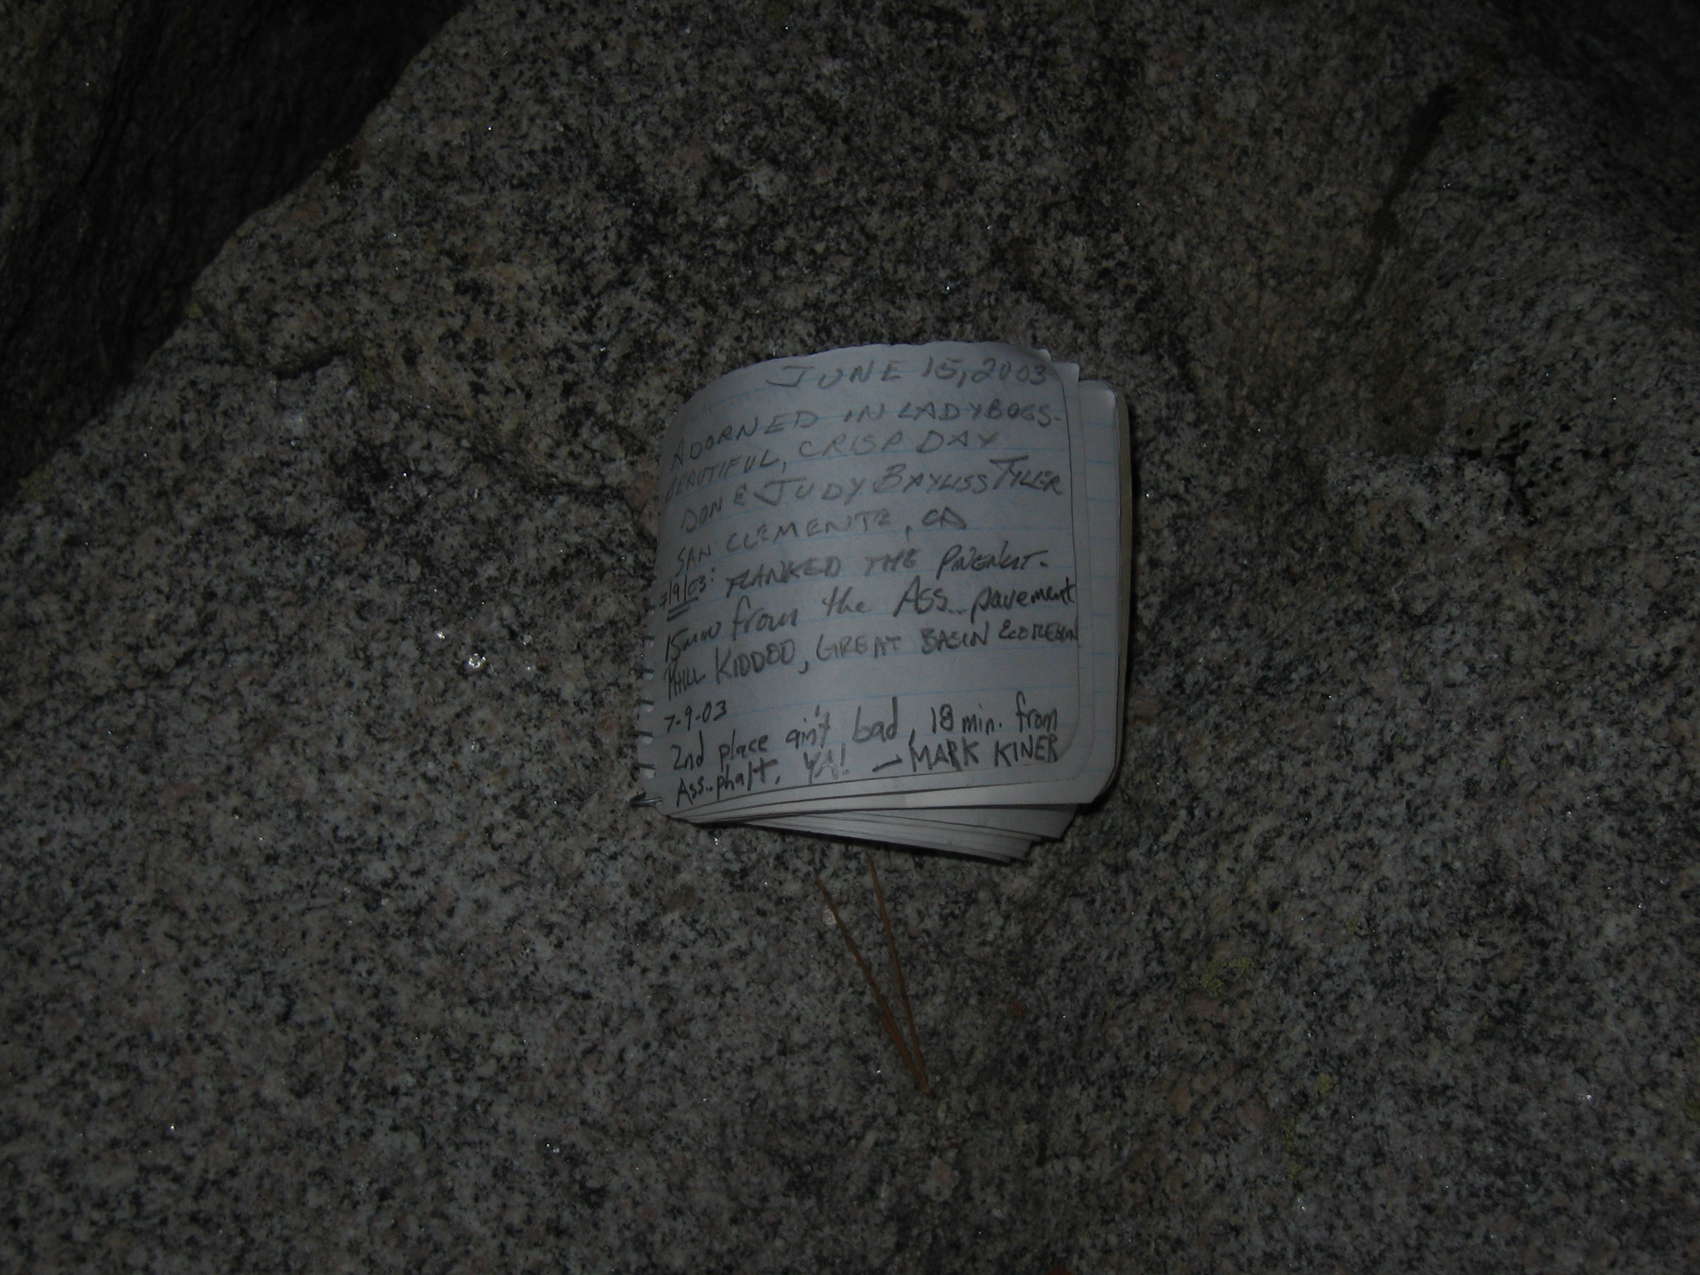 JUNE 15, 2003
ADORNED IN LADYBUGS-
BEAUTIFUL, CRISP DAY
DON & JUDY BAYLISS TYLER
SAN CLEMENTE, CA
7/9/03: FLANKED THE
15min from the Ass..pavement
GREAT BASIN
7-9-03
2nd place ain't bad, 18 min. from
Ass..phalt. YA! — MARK KINER